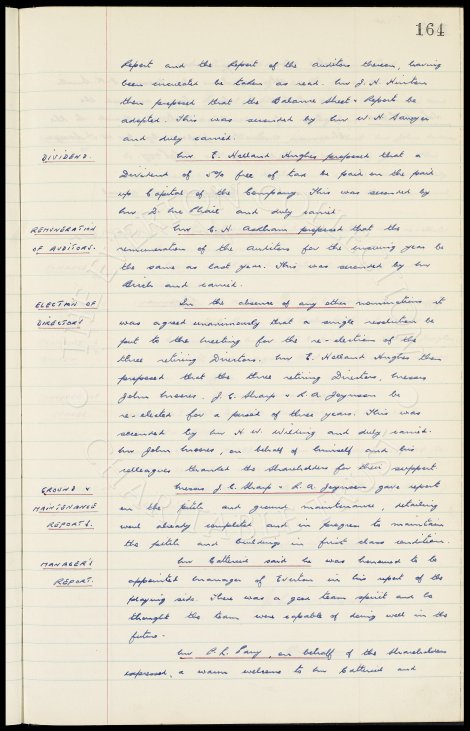 164
Report and the Report of the Auditors thereon, having
been circulated be taken as read. Mr J. H. Hinton
then proposed that the Balance Sheet & Report be
adopted. This was seconded by Mr W. H. Sawyer
and duly carried.
DIVIDEND. Mr E. Holland Hughes proposed that a
Dividend of 5% free of tax be paid on the paid
up Capital of the Company. This was seconded by
Mr D. and duly carried.
REMUNERATION Mr C. H. Askham proposed that the
OF AUDITORS. remuneration of the Auditors for the ensuing year be
the same as last year. This was seconded by Mr
and carried.
ELECTION OF In the absence of any other nominations it
DIRECTORS was agreed unanimously that a single resolution be
put to the meeting for the re-election of the
three retiring Directors. Mr E. Holland Hughes then
proposed that the three retiring Directors, Messrs
John Moores. J. C. Sharp & R. A. Joynson be
re-elected for a period of three years. This was
seconded by Mr H. W. Wilding and duly carried.
Mr John Moores, on behalf of himself and his
colleagues thanked the Shareholders for their support
GROUND & Messrs J. C. Sharp & R. A. Joynson gave report
MAINTENANCE on the pitch and ground maintenance, detailing
REPORTS. work already completed and in progress to maintain
the pitch and buildings in first class condition.
MANAGER'S Mr Catterick said he was honoured to be
REPORT. appointed Manager of Everton in his report of the
playing side. There was a good team spirit and he
thought the team were capable of doing well in the
future.
Mr P. L. Parry, on behalf of the Shareholders
expressed, a warm welcome to Mr Catterick and